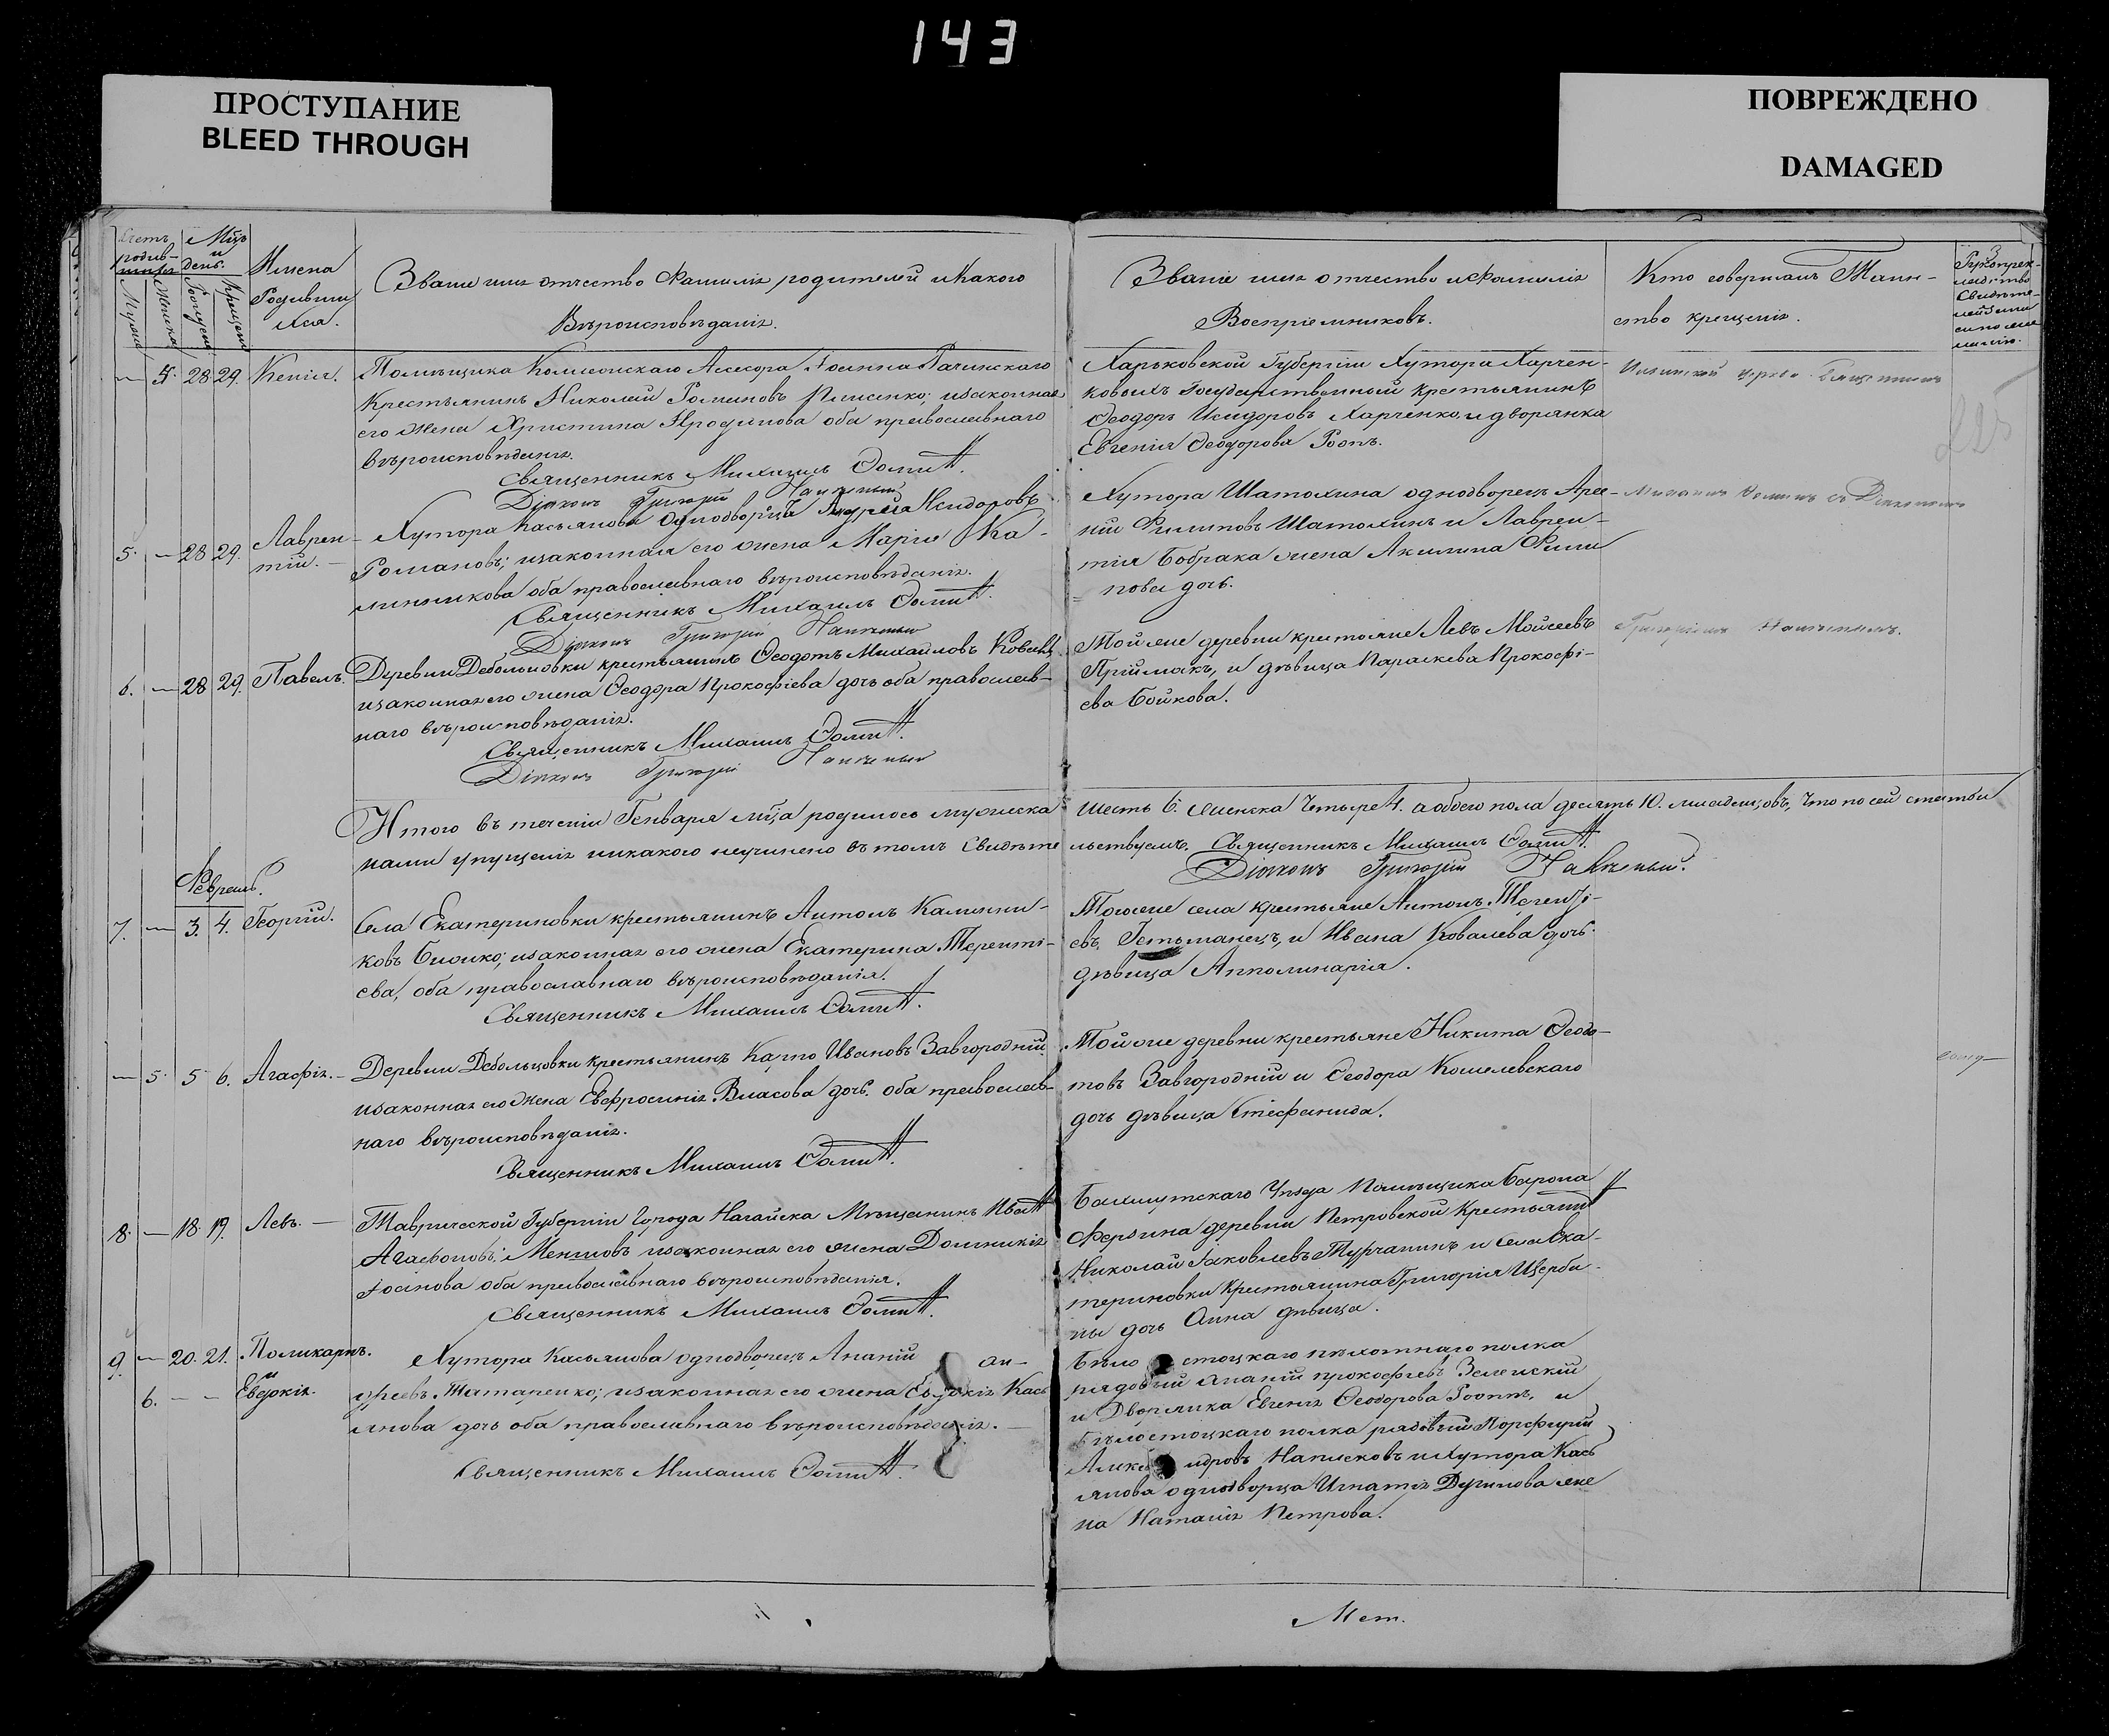 143
ПРОСТУПАНИЕ
BLEED THROUGH
ПОВРЕЖДЕНО
DAMAGED
Счетъ родив- Мцъ и день.
Мужск. Женска Рожденія Крещенія
Имена Родивши хся.
Званіе имя отчество Фамилія родителей и Какого
Вѣроисповѣданія.
Званіе имя отчество и Фамилія
Воспріемниковъ.
Кто совершалъ Таин-
ство крещенія.
4. 28 29. Ксенія.
Помѣщика Коллежскаго Ассесора Рачинскаго
Крестьянинъ Николай Романовъ Плисенко; изаконная
его жена Христина Трофимова оба православнаго
вѣроисповѣданія.
Священникъ Михаилъ Ѳоминъ.
Діяконъ Григорій
Харьковской Губерніи Хутора Харчен-
ковыхъ Государственный крестьянинъ
Ѳеодоръ Исидоровъ Харченко, и дворянка
Евгенія Ѳеодорова Роопъ.
церкви Священникъ
5. 28 29. Лаврен-
тій.
Хутора Касьянова Однодворца Исидоровъ
Романовъ; изаконная его жена Марія Ка-
линникова оба православнаго вѣроисповѣданія.
Священникъ Михаилъ Ѳоминъ.
Діяконъ Григорій
Хутора Шатохина однодворецъ Арсе-
ній Филиповъ Шатохинъ и Лаврен-
тія Бобрака жена Акилина Фили
пова дочь.
Михаилъ Ѳоминъ съ Діякономъ
6. 28 29. Павелъ.
Деревни Дебольцовки крестьянинъ Ѳеодотъ Михайловъ
изаконная его жена Ѳеодора Прокофіева дочь оба православ-
наго вѣроисповѣданія.
Священникъ Михаилъ Ѳоминъ.
Діяконъ Григорій
Той же деревни крестьяне Левъ Мойсеевъ
Приймакъ, и дѣвица Параскева Прокофі-
ева Бойкова.
Григоріемъ
Итого въ теченіи Генваря мца родилось мужеска
шесть 6. женска Четыре 4. а обоего пола десять 10. младенцовъ, что по сей статьи
нами упущенія никакого неучинено въ томъ Свидѣте
льствуемъ. Священникъ Михаилъ Ѳоминъ.
Діяконъ Григорій
Февраль.
7. 3. 4. Георгій.
Села Екатериновки крестьянинъ Антонъ Калинни-
ковъ изаконная его жена Екатерина Теренті-
ева, оба православнаго вѣроисповѣданія.
Священникъ Михаилъ Ѳоминъ.
Того же села крестьяне Антонъ Теренті-
евъ Гетьманецъ, и Ивана Ковалева дочь
дѣвица Апполинарія.
5. 5 6. Агафія.
Деревни Дебольцовки крестьянинъ Карпо Ивановъ Завгородній
изаконная его жена Евфросинія Власова дочь. оба православ-
наго вѣроисповѣданія.
Священникъ Михаилъ Ѳоминъ.
Той же деревни крестьяне Никита Ѳеодо-
товъ Завгородній и Ѳеодора Кошелевскаго
дочь дѣвица Стефанида.
8. 18. 19. Левъ.
Таврической Губерніи Города Нагайска Мѣщанинъ Иванъ
Агафоновъ Меншовъ изаконная его жена Домникія
оба православнаго вѣроисповѣданія.
Священникъ Михаилъ Ѳоминъ.
Бахмутскаго Уѣзда Помѣщика Барона
Ферзина деревни Петровской Крестьянинъ
Николай Яковлевъ Турчанинъ и села Ека-
териновки Крестьянина Григорія Щерби-
ны дочь Анна дѣвица.
9. 20. 21. Поликарпъ.
6. и Евдокія.
Хутора Касьянова однодворецъ Ананій Ан-
дреевъ Татаренко; изаконная его жена Евдокія Кась
янова дочь оба православнаго вѣроисповѣданія.
Священникъ Михаилъ Ѳоминъ.
Бѣло стоцкаго пѣхотнаго полка
рядовый Ананій прокофьевъ Зеленскій
и Дворянка Евгенія Ѳеодорова Роопъ, и
Бѣлостоцкаго полка рядовый Порфирій
Алекс ндровъ Написковъ и Хутора Кась
янова однодворца Игнатія Дугинова же
на Наталія Петрова.
Мет.